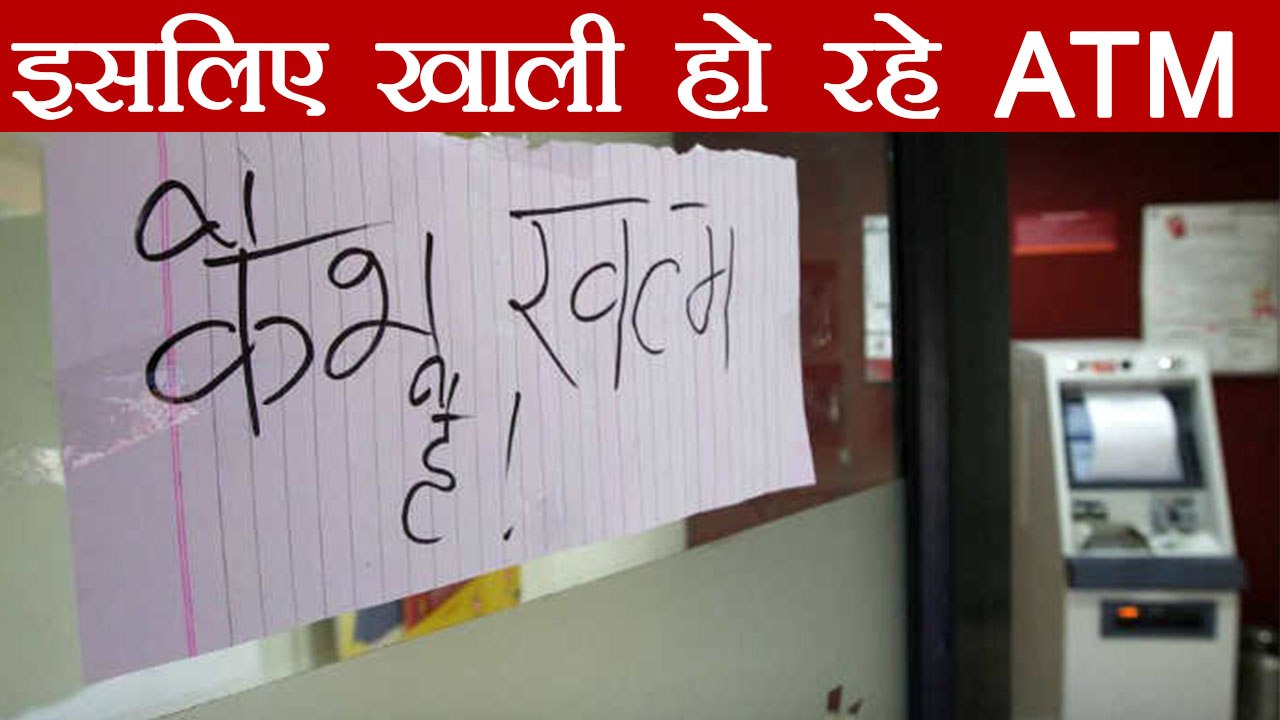 इसलिए खाली हो रहे ATM
कैश खत्म
है!